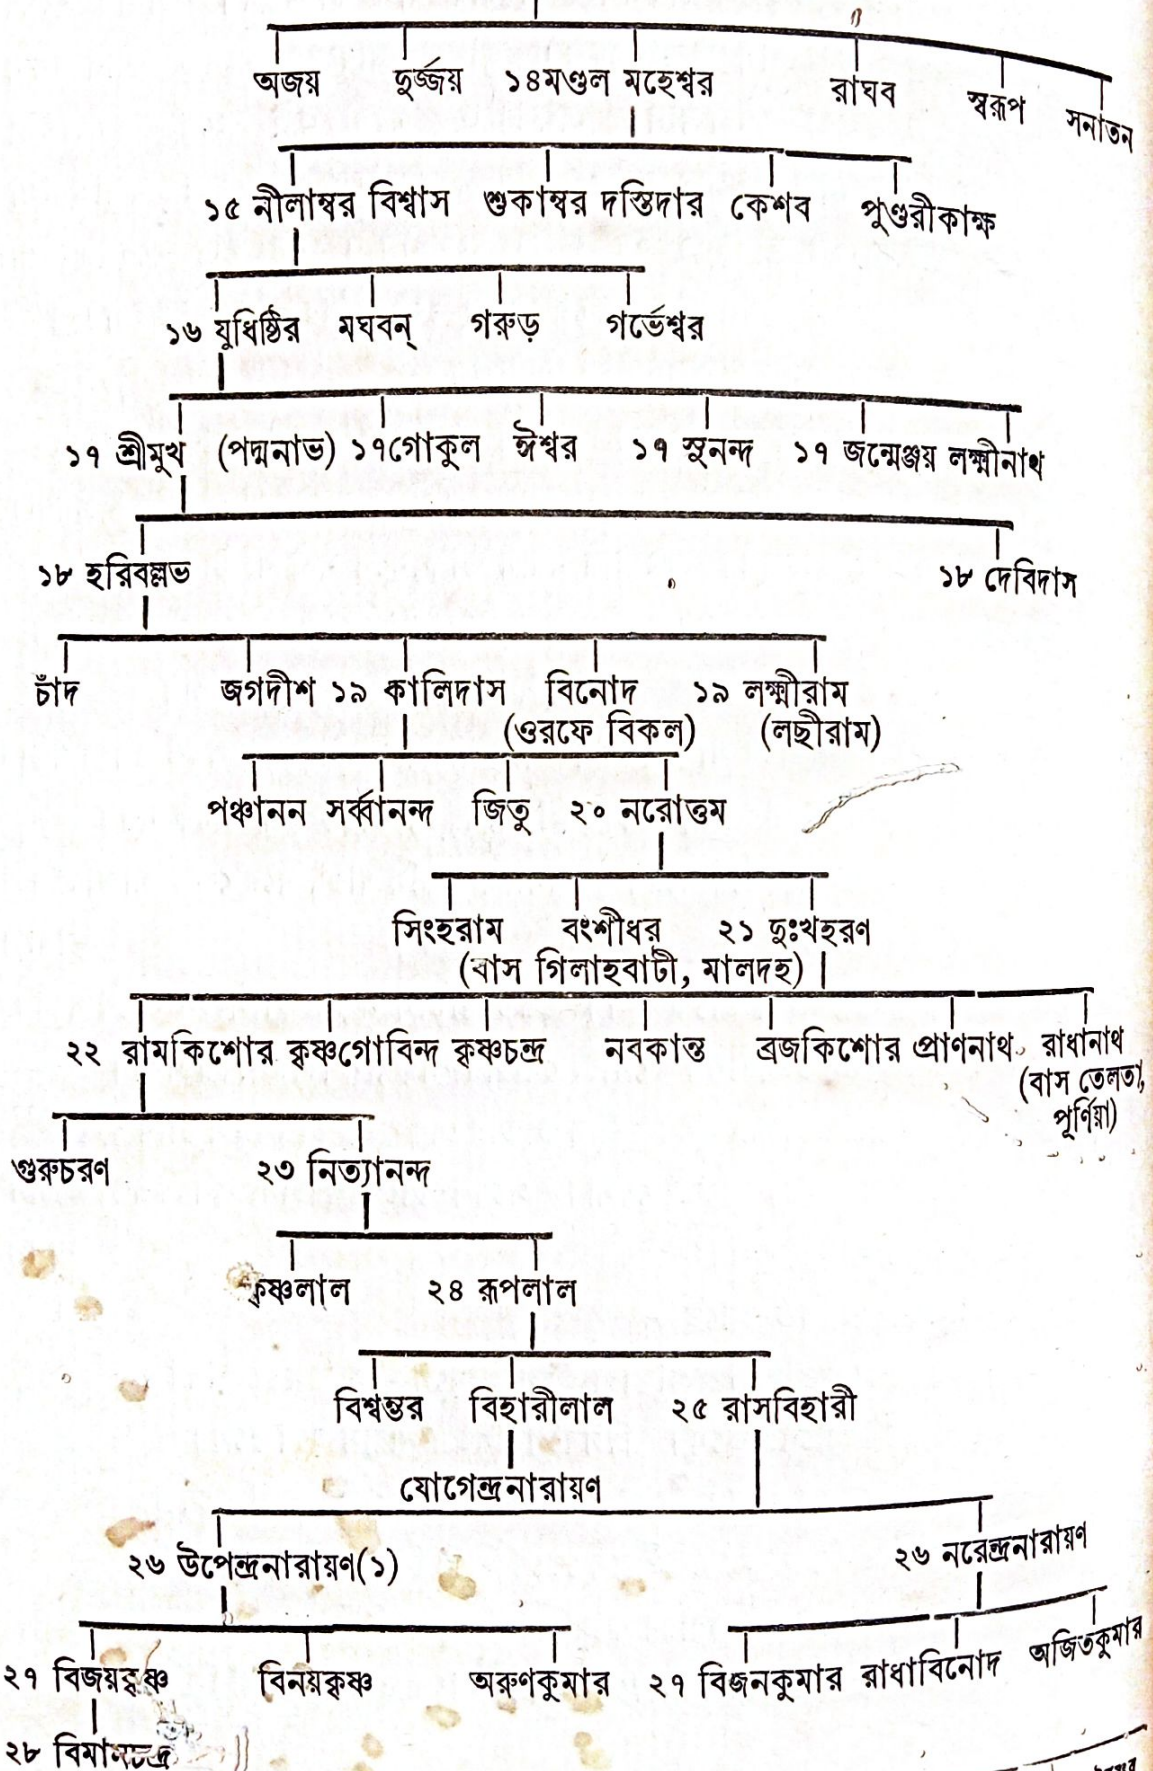 অজয় দুর্জ্জয় ১৪মণ্ডল মহেশ্বর রাঘব স্বরূপ সনাতন
১৫ নীলাম্বর বিশ্বাস শুকাম্বর দস্তিদার কেশব পুণ্ডরীকাক্ষ
১৬ যুধিষ্ঠির মঘবন্ গরুড় গর্ভেশ্বর
১৭ শ্রীমুখ (পদ্মনাভ) ১৭গোকুল ঈশ্বর ১৭ সুনন্দ ১৭ জন্মেঞ্জয় লক্ষ্মীনাথ
১৮ হরিবল্লভ ১৮ দেবিদাস
চাঁদ জগদীশ ১৯ কালিদাস বিনোদ ১৯ লক্ষ্মীরাম
(ওরফে বিকল) (লছীরাম)
পঞ্চানন সর্ব্বানন্দ জিতু ২০ নরোত্তম
সিংহরাম বংশীধর ২১ দুঃখহরণ
(বাস গিলাহবাটী, মালদহ)
২২ রামকিশোর কৃষ্ণগোবিন্দ কৃষ্ণচন্দ্র নবকান্ত ব্রজকিশোর প্রাণনাথ রাধানাথ
(বাস তেলতা,
পূর্ণিয়া)
গুরুচরণ ২৩ নিত্যানন্দ
কৃষ্ণলাল ২৪ রূপলাল
বিশ্বম্ভর বিহারীলাল ২৫ রাসবিহারী
যোগেন্দ্রনারায়ণ
২৬ উপেন্দ্রনারায়ণ(১) ২৬ নরেন্দ্রনারায়ণ
২৭ বিজয়কৃষ্ণ বিনয়কৃষ্ণ অরুণকুমার ২৭ বিজনকুমার রাধাবিনোদ অজিতকুমার
২৮ বিমানচন্দ্র